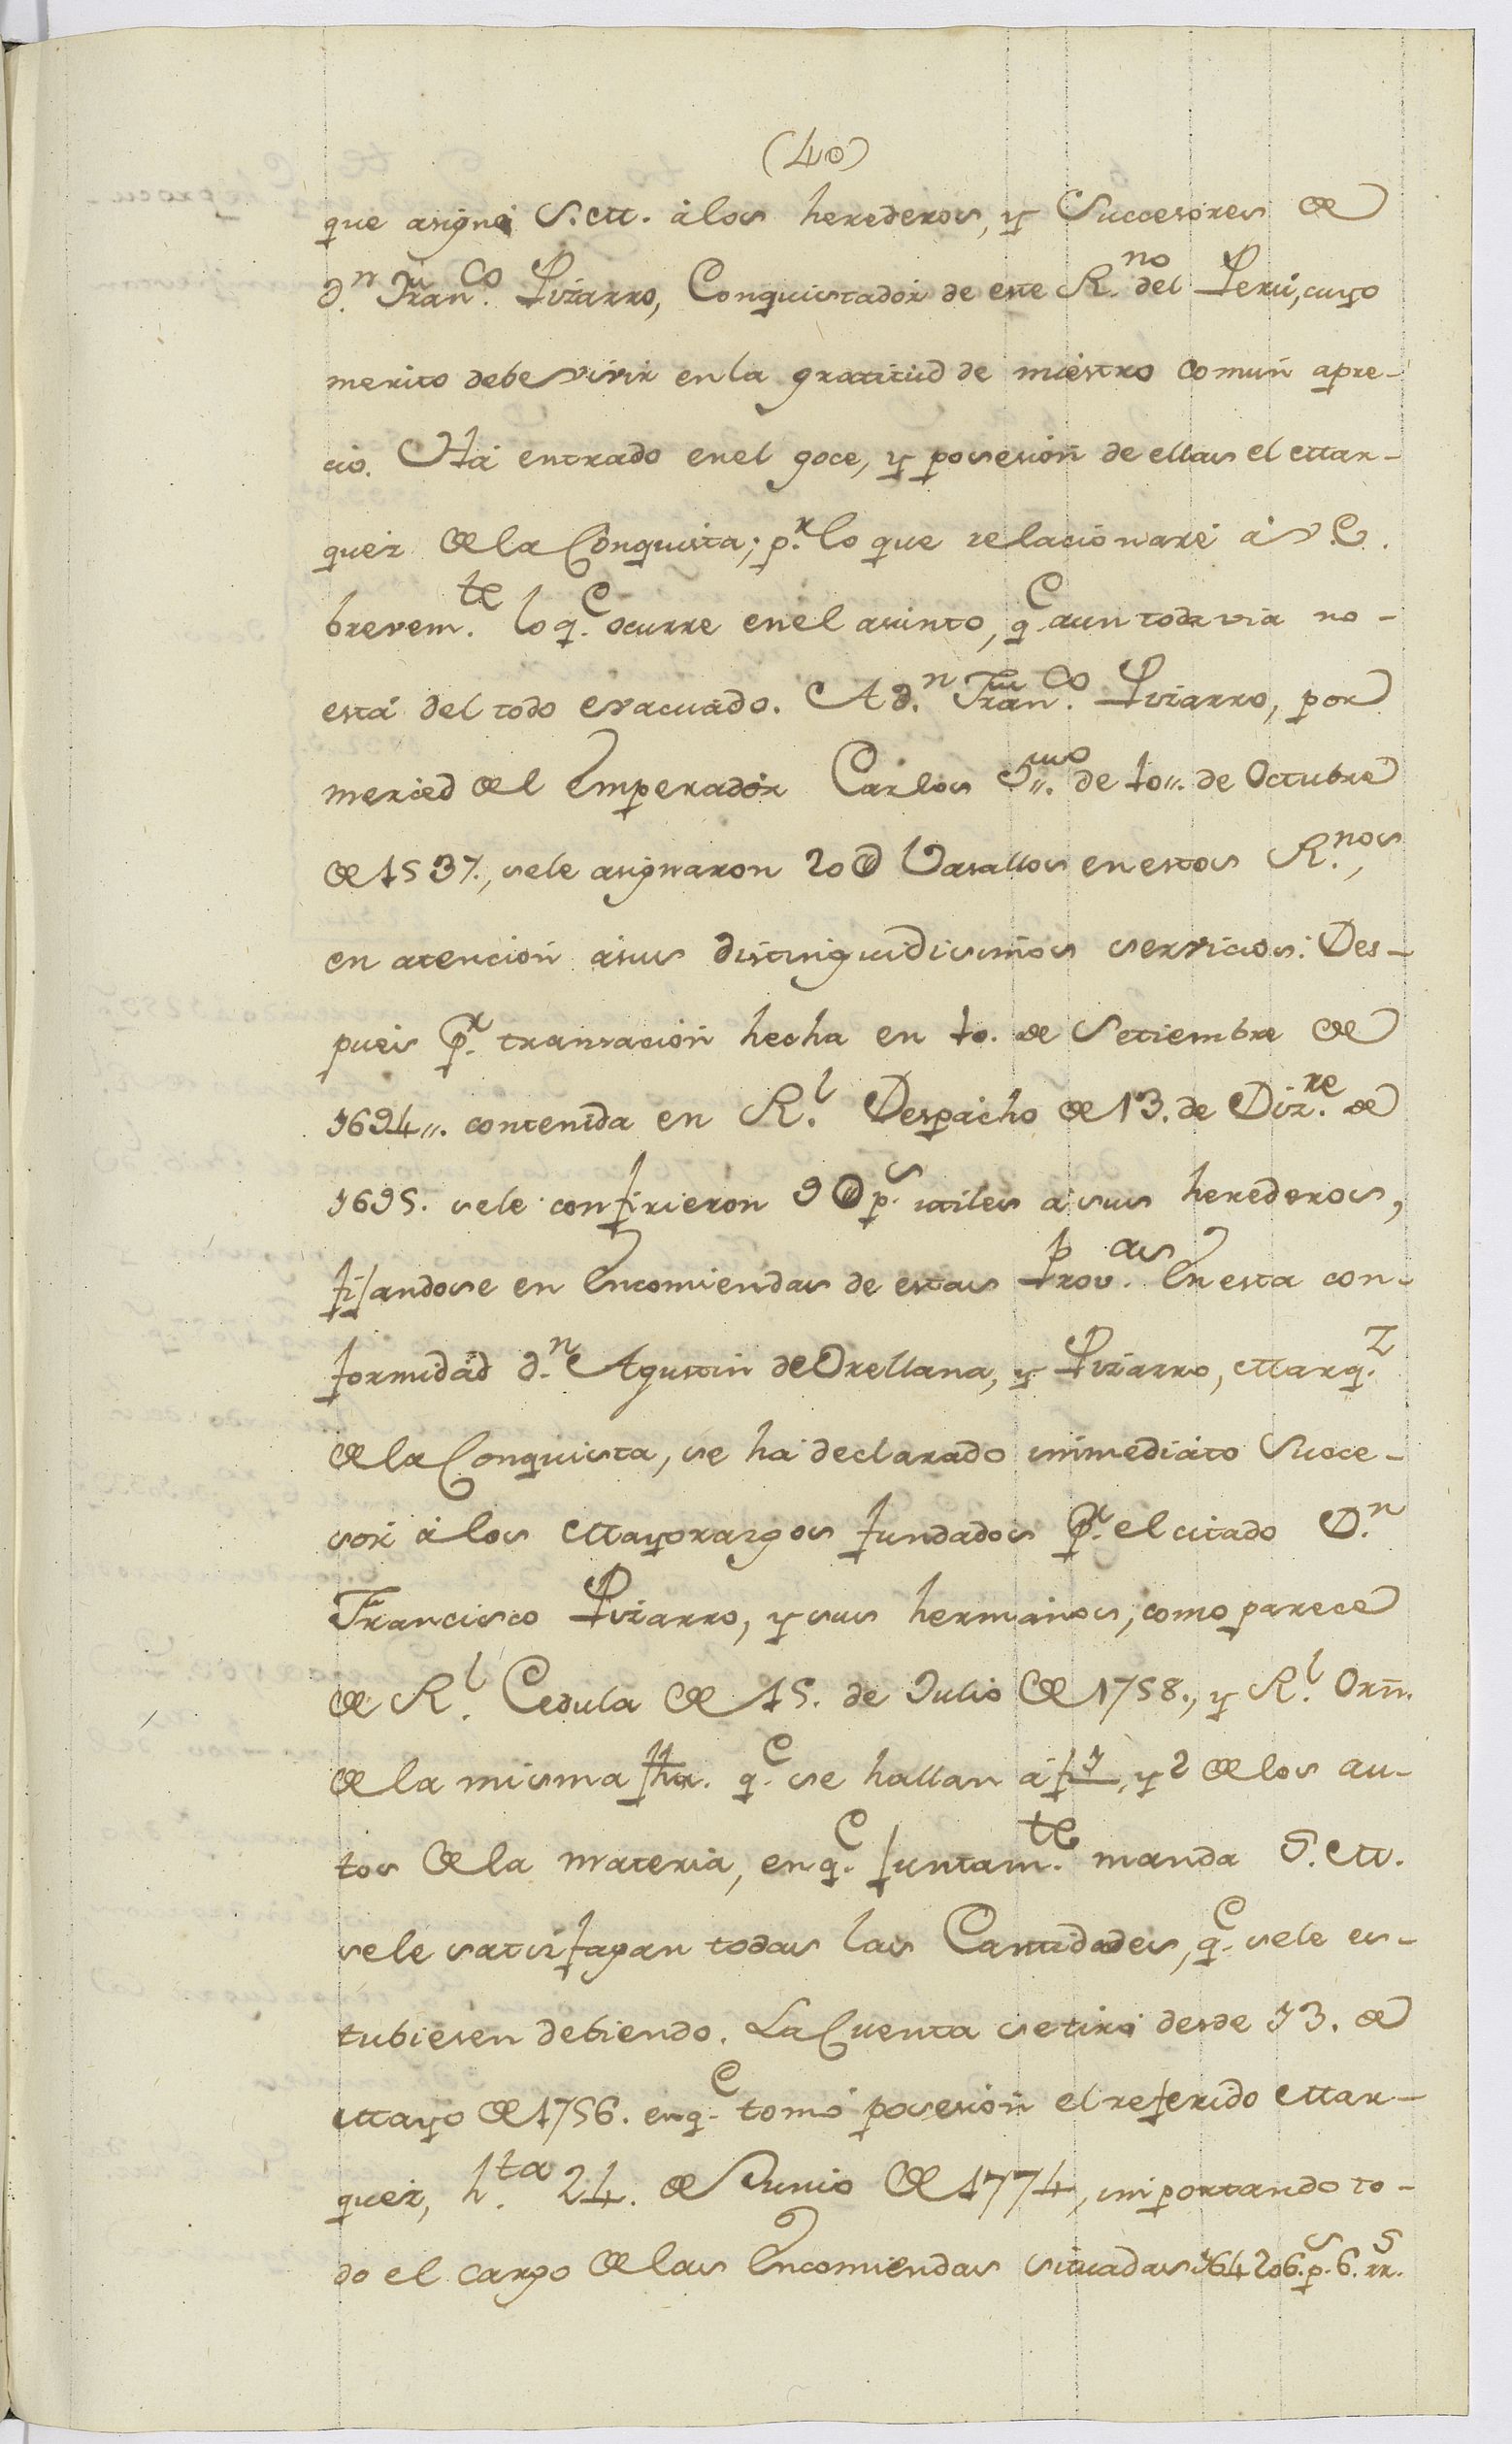 (40)
que asignó S. M. á los herederos, y Succesores de
d.n Fran.co Pizarro, Conquistador de este R.no del Perú, cuyo
merito debe vivir en la gratitud de nuestro comun apre-
cio. Há entrado en el goce, y posesion de ellas el Mar-
quez de la Conquista; p.r lo que relacionaré á V. E.
brevem.te lo q.e ocurre en el asunto, q.e aun todavia no-
está del todo evacuado. A d.n Fran.co Pizarro, por
merced del Emperador Carlos 5,,to de 10,, de Octubre
de 1537., se le asignaron 20@ Vasallos en estos R.nos,
en atencion á sus distinguidisimos servicios: Des-
pues p.r transacion hecha en 10. de Setiembre de
1694,, contenida en R.l Despacho de 13. de Diz.re de
1695. se le confirieron 9@ p.s utiles á sus herederos,
fijandose en Encomiendas de estas Prov.as En esta con-
formidad d.n Agustin de Orellana, y Pizarro, Marq.z
de la Conquista, se ha declarado immediato Succe-
sor á los Mayorazgos fundados p.r el citado D.n
Francisco Pizarro, y sus hermanos, como parece
de R.l Cedula de 15. de Julio de 1758., y R.l Orn.
de la misma fha. q.e se hallan á f 1, y 2 de los au-
tos de la materia, en q.e juntam.te manda S. M.
se le satisfagan todas las Cantidades, q.e se le es-
tubiesen debiendo. La Cuenta se tiró desde 13. de
Mayo de 1756. en q.e tomó posesion el referido Mar-
quez, h.ta 24. de Junio de 1774, importando to-
do el cargo de las Encomiendas situadas 164206. p.s 6. rr.s